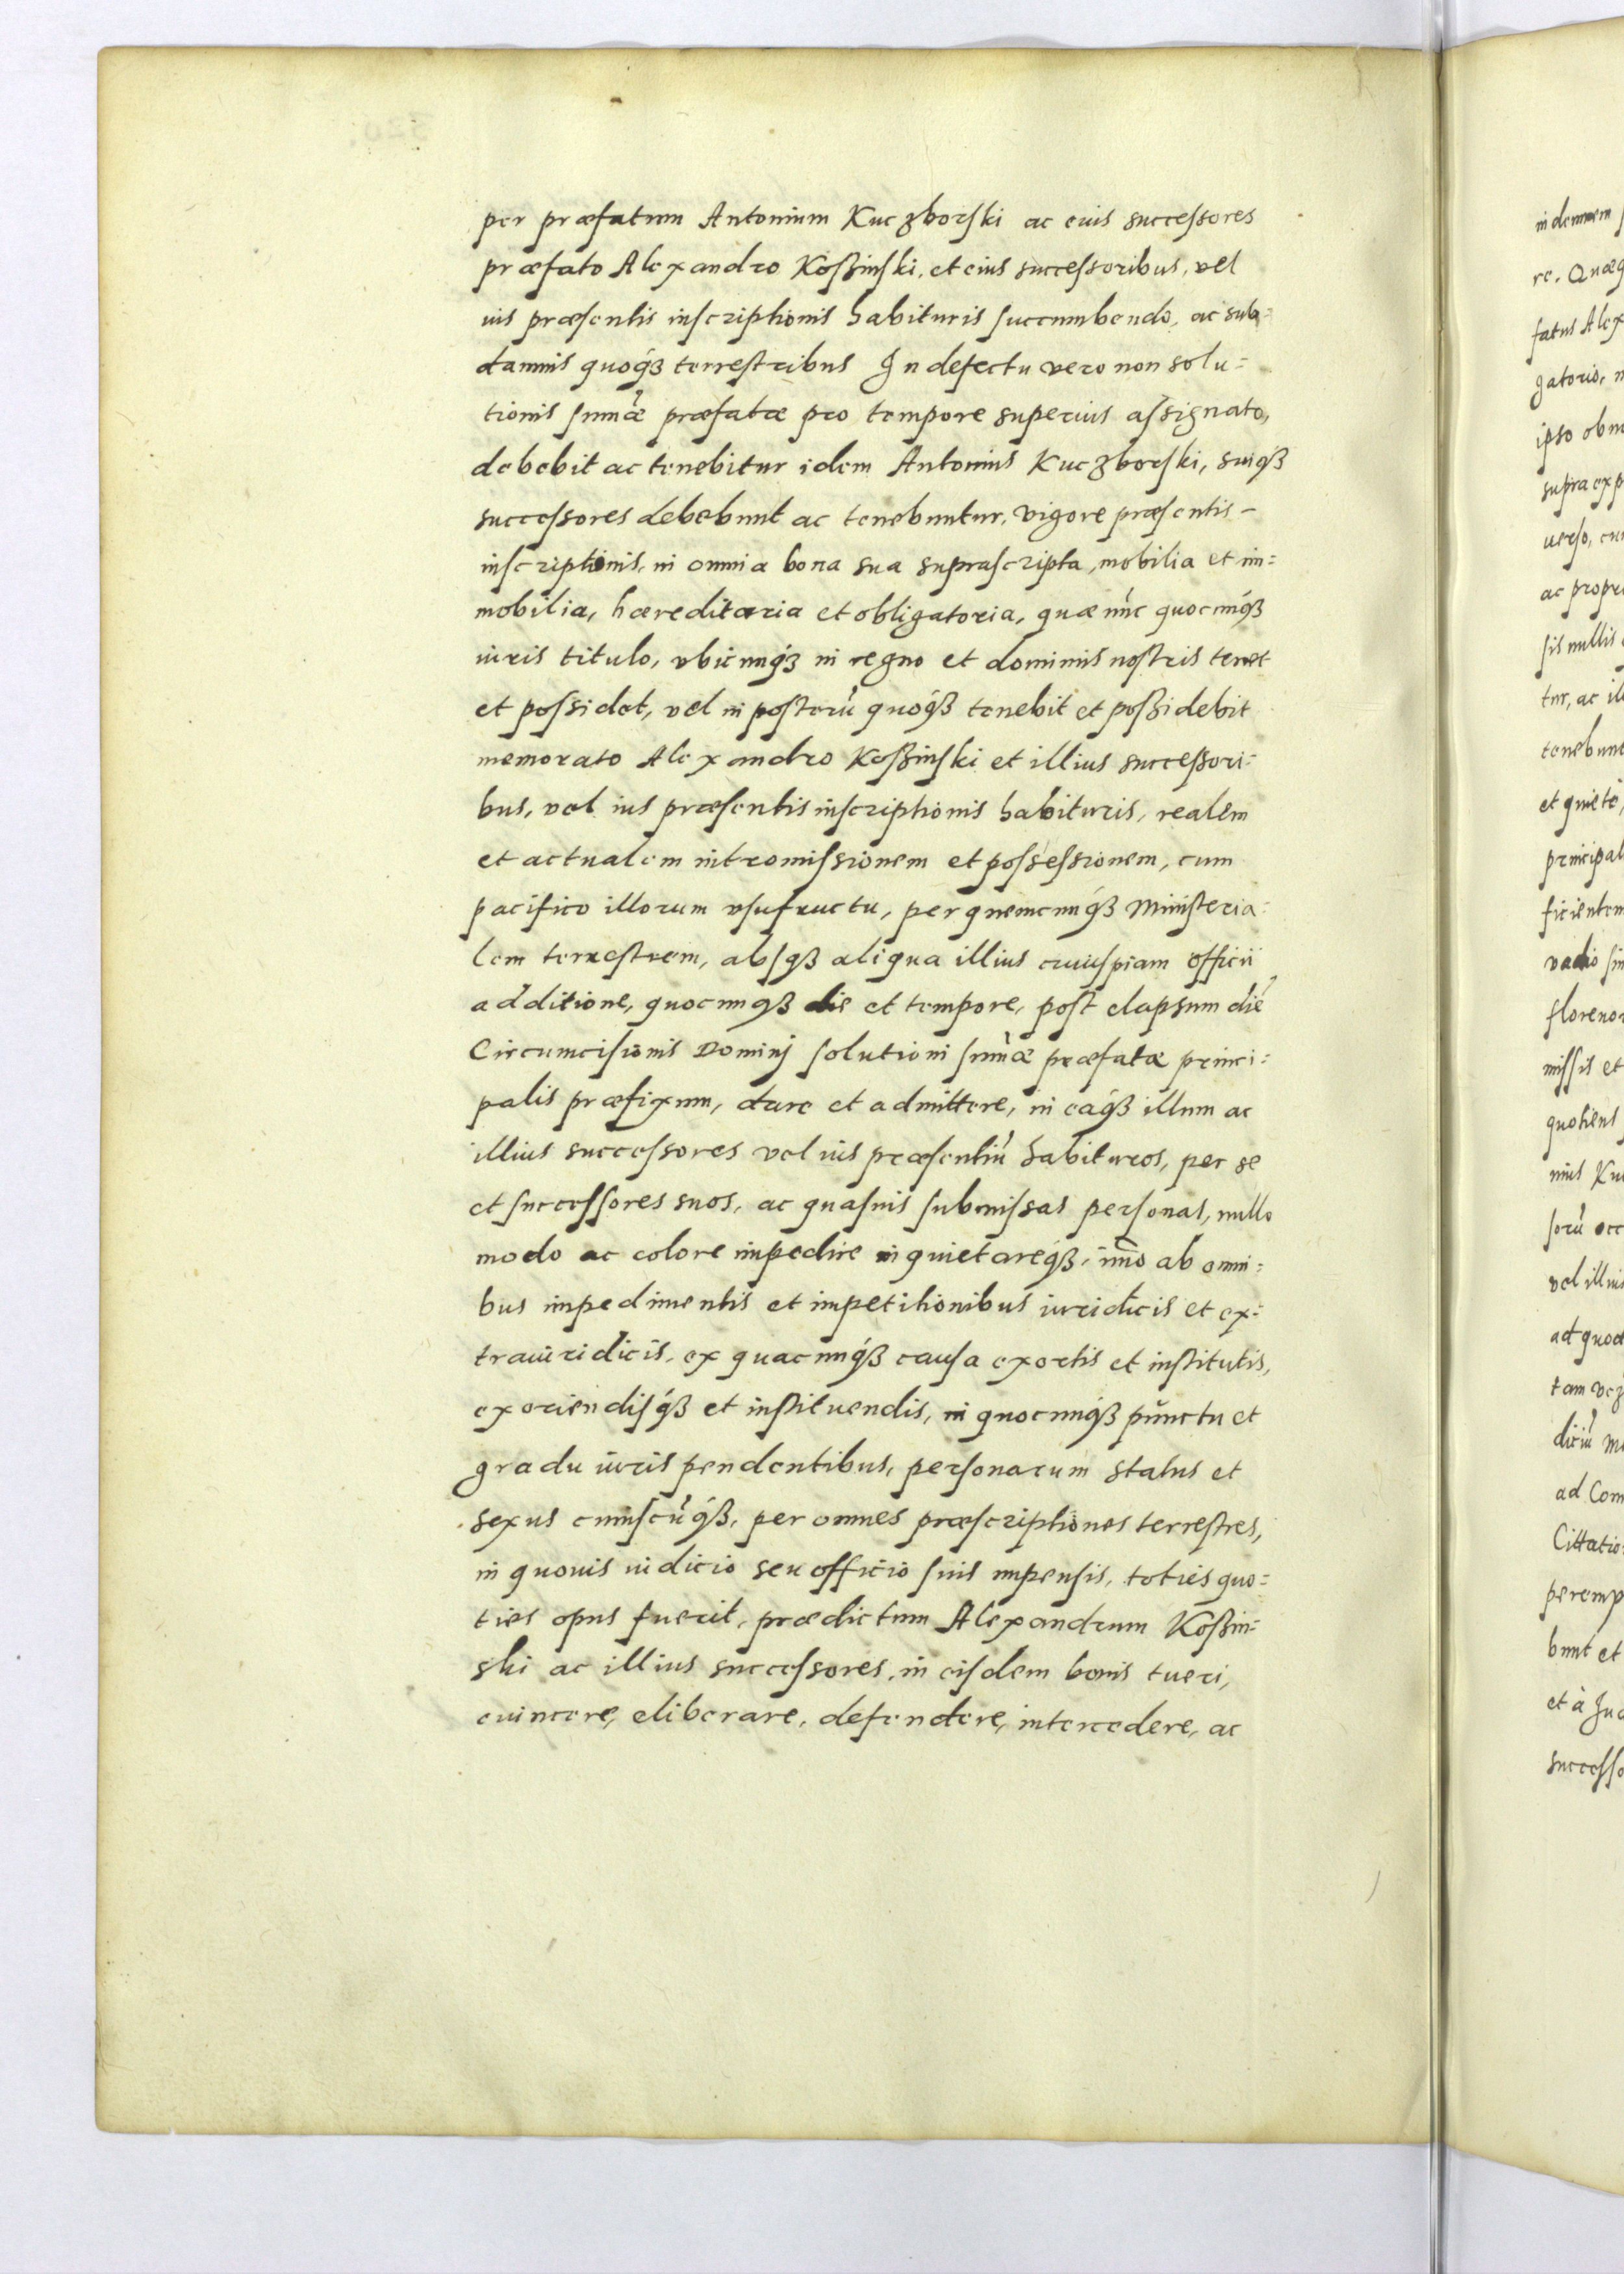 per præfatum Antonium Kuczborski ac eius successores
præfato Alexandro Koßinski, et eius successoribus, vel
ius præsentis inscriptionis habituris succumbendo, ac sub
damnis quoqȝ terrestribus In defectu vero non solu=
tionis sum̃æ præfatæ pro tempore superius assignato,
debebit ac tenebitur idem Antonius Kuczborski, suiqȝ
successores debebunt ac tenebuntur, vigore præsentis
inscriptionis, in omnia bona sua suprascripta, mobilia et im=
mobilia, hæreditaria et obligatoria, quæ nũc quocunqȝ
iuris titulo, vbicunqȝ in regno et dominiis nostris tenet
et possidet, vel in posterũ quoqȝ tenebit et poßidebit
memorato Alexandro Koßinski et illius successori=
bus, vel ius præsentis inscriptionis habituris, realem
et actualem intromissionem et possessionem, cum
pacifico illorum vsufructu, per quemcunqȝ Ministeria=
lem terrestrem, absqȝ aliqua illius cuiuspiam officii
additione, quocunqȝ die et tempore, post elapsum diẽ
Circumcisionis Dominj solutioni sum̃æ præfatæ princi=
palis præfixum, dare et admittere, in eaqȝ illum ac
illius successores vel ius præsentiũ habituros, per se
et successores suos, ac quasuis submissas personas, nullo
modo ac colore impedire inquietareqȝ, im̃o ab omni=
bus impedimentis et impetitionibus iuridicis et ex=
traiuridicis, ex quacunqȝ causa exortis et institutis,
exoriendisqȝ et instituendis, in quocunqȝ punctu et
gradu iuris pendentibus, personarum status et
sexus cuiuscũqȝ, per omnes præscriptiones terrestres,
in quouis iudicio seu officio suis impensis, toties quo=
ties opus fuerit, prædictum Alexandrum Koßin=
ski ac illius successores, in eisdem bonis tueri,
euincere, eliberare, defendere, intercedere, ac